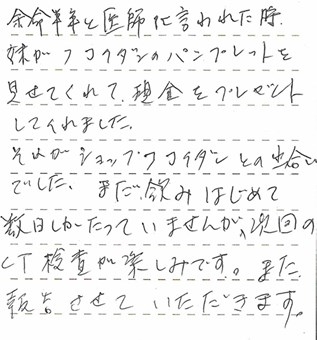 余命半年と医師に言われた時、
妹がフコイダンのパンフレットを
見せてくれて、現金をプレゼント
してくれました。
それがショップフコイダンとの出合い
でした。まだ飲みはじめて
数日しかたっていませんが、次回の
CT検査が楽しみです。また、
報告させていただきます。